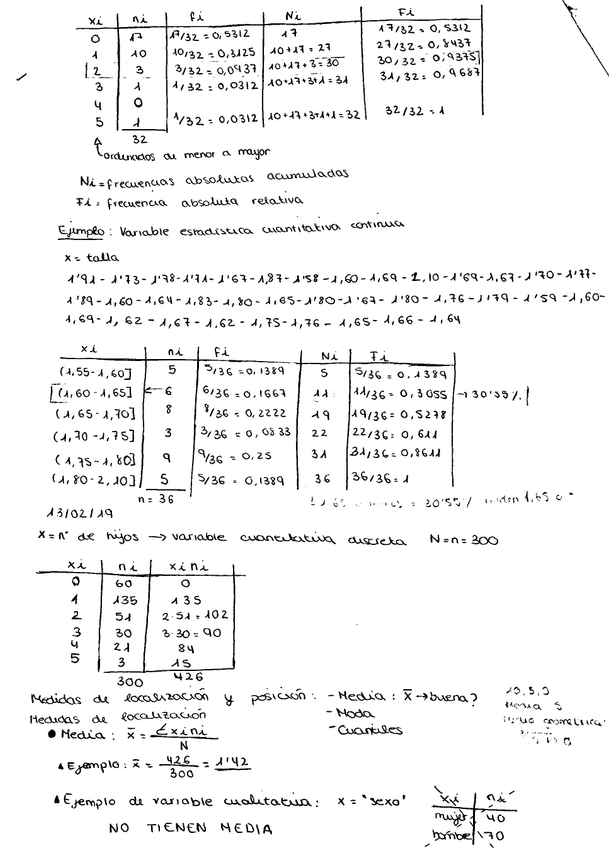 xi ni fi Ni Fi
0 17 17/32 = 0,5312 17 17/32 = 0,5312
1 10 10/32 = 0,3125 10+17 = 27 27/32 = 0,8437
2 3 3/32 = 0,0937 10+17+3=30 30/32 = 0,9375
3 1 1/32 = 0,0312 10+17+3+1=31 31/32 = 0,9687
4 0
5 1 1/32 = 0,0312 10+17+3+1+1=32 32/32 = 1
32
ordenados de menor a mayor
Ni = frecuencias absolutas acumuladas
Fi = frecuencia absoluta relativa
Ejemplo: Variable estadística cuantitativa continua
x = talla
1'91 - 1'73 - 1'78 - 1'71 - 1'67 - 1,87 - 1'58 - 1,60 - 1,69 - 2,10 - 1'69 - 1,67 - 1'70 - 1'77 -
1'89 - 1,60 - 1,64 - 1,83 - 1,80 - 1,65 - 1'80 - 1'67 - 1'80 - 1,76 - 1'79 - 1'59 - 1,60 -
1,69 - 1,62 - 1,67 - 1,62 - 1,75 - 1,76 - 1,65 - 1,66 - 1,64
xi ni fi Ni Fi
(1,55-1,60] 5 5/36 = 0,1389 5 5/36 = 0,1389
(1,60-1,65] 6 6/36 = 0,1667 11 11/36 = 0,3055 → 30'55%
(1,65-1,70] 8 8/36 = 0,2222 19 19/36 = 0,5278
(1,70-1,75] 3 3/36 = 0,0833 22 22/36 = 0,611
(1,75-1,80] 9 9/36 = 0,25 31 31/36 = 0,8611
(1,80-2,10] 5 5/36 = 0,1389 36 36/36 = 1
n = 36
1,65 = 30'55% miden 1,65 o
13/02/19
X = nº de hijos → variable cuantitativa discreta N=n=300
xi ni xini
0 60 0
1 135 135
2 51 2·51 = 102
3 30 3·30 = 90
4 21 84
5 3 15
300 426
Medidas de localización y posición: - Media: x̄ → buena?
Medidas de localización - Moda
- Cuartiles
10,5,0
Media 5
● Media: x̄ = Σxini / N
▲ Ejemplo: x̄ = 426/300 = 1'42
▲ Ejemplo de variable cualitativa: x = "sexo"
NO TIENEN MEDIA
xi ni
mujer 40
hombre 70